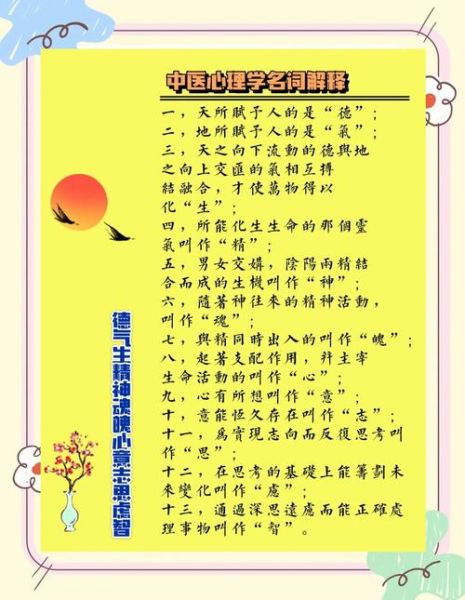 中医心理学名词解释
一，天所賦予人的是“德”；
二，地所賦予人的是“氣”；
三，天之向下流動的德與地
之向上交匯的氣相互摶
結融合，才使萬物得以
化“生”；
四，所能化生生命的那個靈
氣叫作“精”；
五，男女交媾，陰陽兩精結
合而成的生機叫作“神”；
六，隨著神往來的精神活動，
叫作“魂”；
七，與精同時出入的叫作“魄”；
八，起著支配作用，并主宰
生命活動的叫作“心”；
九，心有所想叫作“意”；
十，意能恆久存在叫作“志”；
十一，為實現志向而反復思考叫
作“思”；
十二，在思考的基礎上能籌劃未
來變化叫作“慮”；
十三，通過深思遠慮而能正確處
理事物叫作“智”。
德气生精神魂魄心意志思虑智